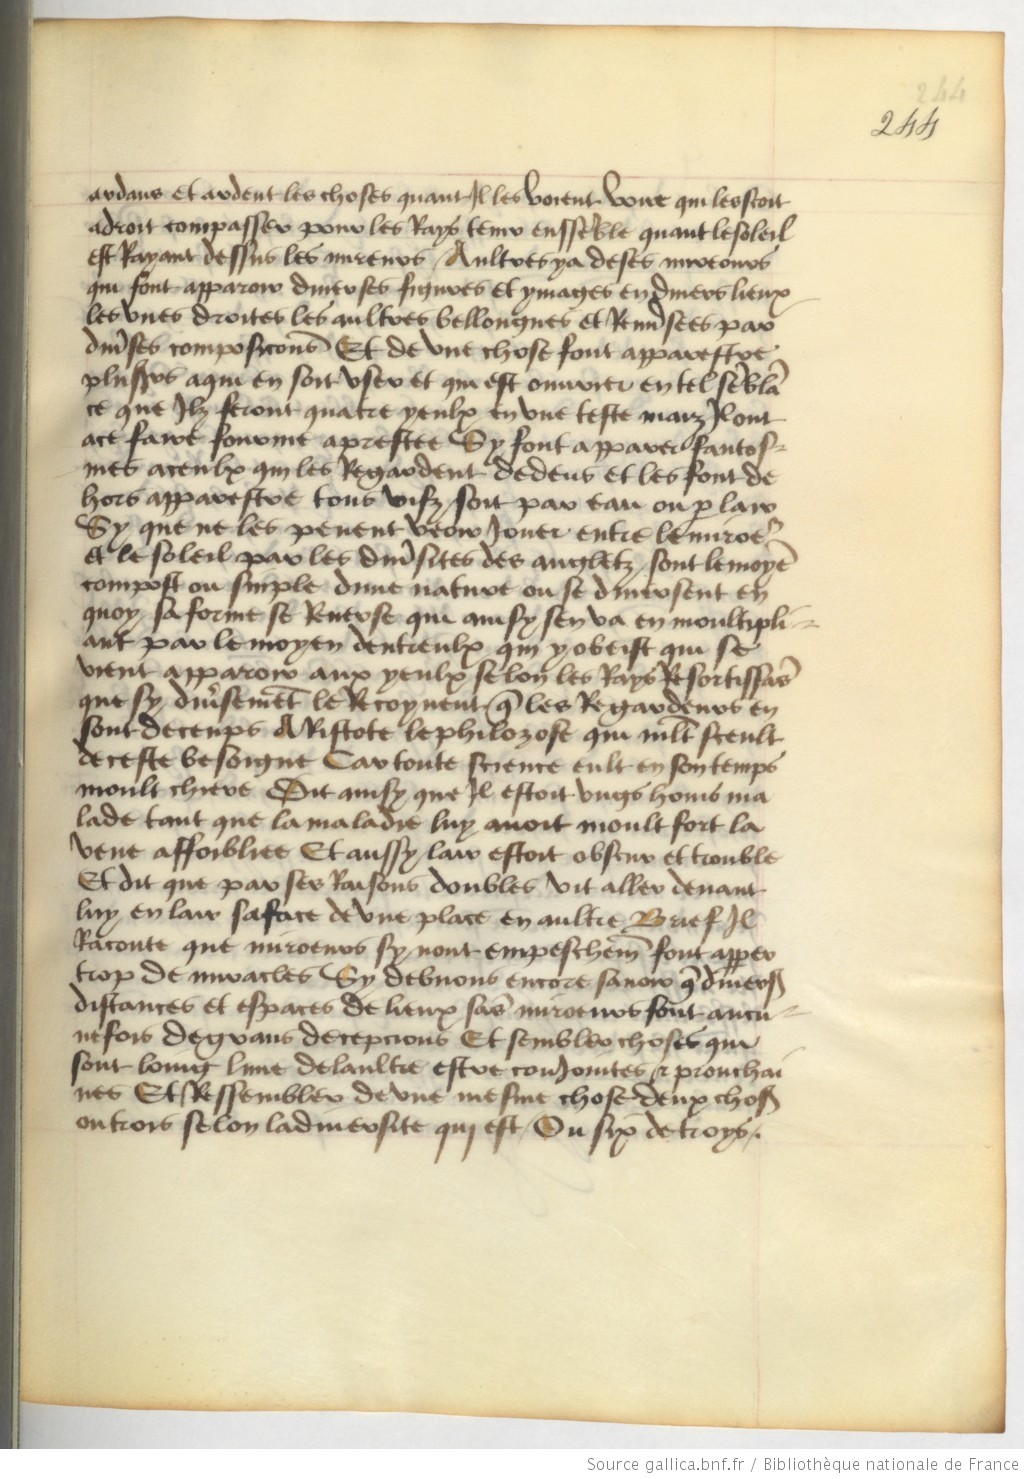 244
244
ardans et ardent les choses quant Il les voient voire qui les scoit
adroit compasser pour les Rays tenir ensse͂ble quant le soleil
est Rayant dessus les mireurs Aultres ya de ses mireours
qui font apparoir diuerses figures et ymages en diuers lieux
les vnes droites les aultres bellongues et Reu͂sees par
diu͂ses composicons͂ Et de vne chose font apparestre
plusrs aqui en soit vser et qui est ouurier en tel se͂bla͂
ce que Ilz feront quatre yeulx en vne teste maiz Il ont
ace faire fourme aprestee Sy font apparer fantos-
mes aceulx qui les Regardent dedens et les font de
hors apparestre tous vifz soit par eau ou p lair
Sy que ne les peuent veoir Jouer entre le miroe͂
et le soleil par les diu͂sites des angletz sont le moye͂
compost ou simple dune nature ou se diuersent en
quoy sa forme se Reuerse qui ainsy sen va en moultipli-
ant par le moyen dentreulx qui y obeist qui se
vient apparoir aux yeulx selon les Rays Resortissa͂s
que sy diu͂seme͂t le Recoyuent q͂ les Regardeurs en
sont deceups ARistote le philozofe qui mlt͂ sceult
de ceste besoigne Car toute science eult en son temps
moult chiere Dit ainsy que Il estoit vngs homs ma
lade tant que la maladie luy auoit moult fort la
veue affoibliee Et aussy lair estoit obscur et trouble
Et dit que par ses Raisons doubles vit aller deuant
luy en lair sa face de vne place en aultre Brief Il
Raconte que miroeurs sy nont empeschem͂ font apper
trop de miracles Sy debuons encore sauoir q͂ diuers
distances et espaces de lieux sa͂s miroeurs font aucu-
nefois de grans decepcions Et sembler choses qui
sont loing lune de laultre estre conJointes et prouchai
nes Et Ressembler de vne mesme chose deux chos
ou trois selon la diuersite qui est Ou six de troys.
Source gallica.bnf.fr / Bibliothèque nationale de France